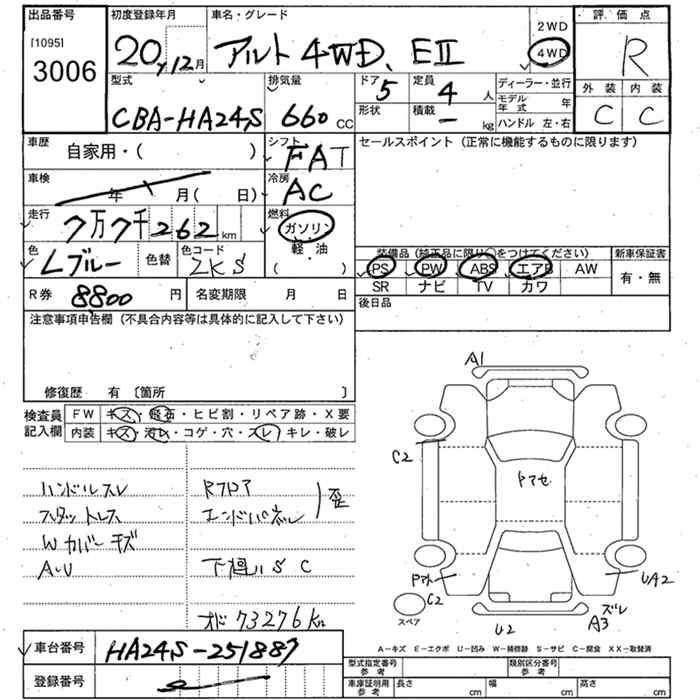 出品番号 初度登録年月 車名・グレード 2WD 評価点
[1095] 20 y 12月 アルト 4WD、EⅡ 4WD R
3006
型式 排気量 ドア 定員 ディーラー・並行 外装 内装
CBA-HA24S 660 CC 5 4 人 モデル年式 年 C C
形状 積載 - kg ハンドル 左・右
車歴 シフト セールスポイント (正常に機能するものに限ります)
自家用・( ) FAT
車検 冷房
年 月( 日) AC
走行 燃料
7万7千262 km ガソリン
色 色替 色コード 軽油 装備品 (純正品に限り○をつけてください) 新車保証書
Lブルー ZKS ( ) PS PW ABS エアB AW 有・無
SR ナビ TV カワ
R券 8800 円 名変期限 月 日 後日品
注意事項申告欄 (不具合内容等は具体的に記入して下さい)
修復歴 有 〔箇所 〕
検査員記入欄 FW キズ・飛石・ヒビ割・リペア跡・X要
内装 キズ・汚レ・コゲ・穴・スレ・キレ・破レ
A1
C2
ハンドルスレ Rフロア
スタットレス エンドパネル 歪
Wカバーキズ
A・U 下廻りS C
オド 73276 km
C2
スペア
U2
UA2
ズレ
A3
A-キズ E-エクボ U-凹み W-補修跡 S-サビ C-腐食 XX-取替済
車台番号 HA24S-251887
型式指定番号 参考 類別区分番号 参考
登録番号
車庫証明用 参考 長さ cm 幅 cm 高さ cm